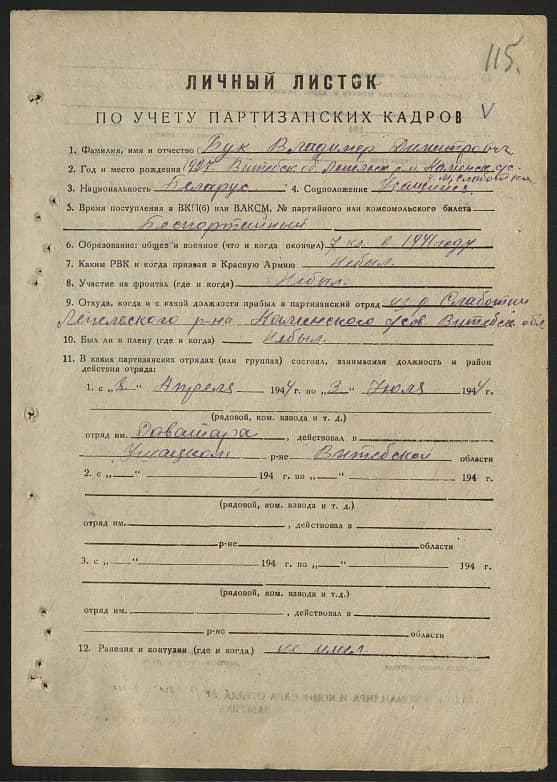 115.
ЛИЧНЫЙ ЛИСТОК
ПО УЧЕТУ ПАРТИЗАНСКИХ КАДРОВ V
1. Фамилия, имя и отчество Бук Владимир Дмитрович
2. Год и место рождения 1927. Витебск об. Лепельск
д. Слаботки
3. Национальность Беларус 4. Соцположение
5. Время поступления в ВКП(б) или ВЛКСМ, № партийного или комсомольского билета
Беспортейный
6. Образование: общее и военное (что и когда окончил) 7 кл. в 1941 году
7. Каким РВК и когда призван в Красную Армию Небыл.
8. Участие на фронтах (где и когда) Небыл.
9. Откуда, когда и с какой должности прибыл в партизанский отряд из д Слаботки
Лепельского р-на Каменского с/сов. Витебск обл
10. Был ли в плену (где и когда) Небыл
11. В каких партизанских отрядах (или группах) состоял, занимаемая должность и район
действия отряда:
1. с „8“ Апреля 1944 г. по „3“ Июля 1944 г.
(рядовой, ком. взвода и т. д.)
отряд им. Даватара, действовал в
Ушацком р-не Витебской области
2. с „ “ 194 г. по „ “ 194 г.
(рядовой, ком. взвода и т. д.)
отряд им. , действовал в
р-не области
3. с „ “ 194 г. по „ “ 194 г.
(рядовой, ком. взвода и т. д.)
отряд им. , действовал в
р-не области
12. Ранения и контузии (где и когда) не имел